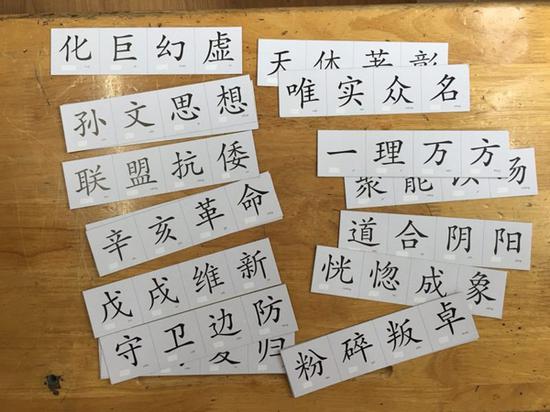 化巨幻虚
孙文思想
联盟抗倭
辛亥革命
戊戌维新
守卫边防
归
天体
唯实众名
一理万方
能
场
道合阴阳
恍惚成象
粉碎叛卓